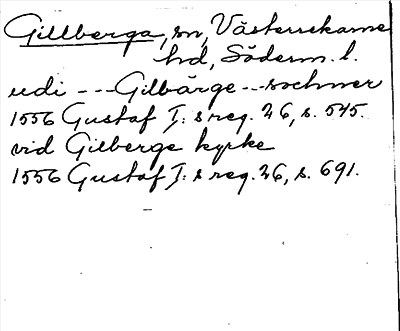 Gillberga, sn, Västerrekarne
hd, Söderm. l.
udi --- Gilbärge -- sochner
1556 Gustaf I:s reg. 26, s. 545.
vid Gilberge kyrke
1556 Gustaf I:s reg. 26, s. 691.